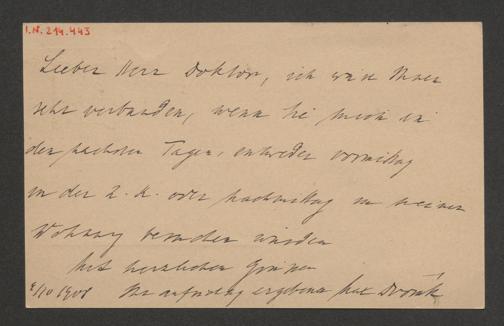 I.N. 214.443
Lieber Herr Doktor, ich wäre Ihnen
sehr verbunden, wenn Sie mich in
den nächsten Tagen, entweder vormittag
in der Z. K. oder nachmittag in meiner
Wohnung besuchen würden
Mit herzlichen Grüßen
9/10 1908 Ihr aufrichtig ergebener Max Dvořák